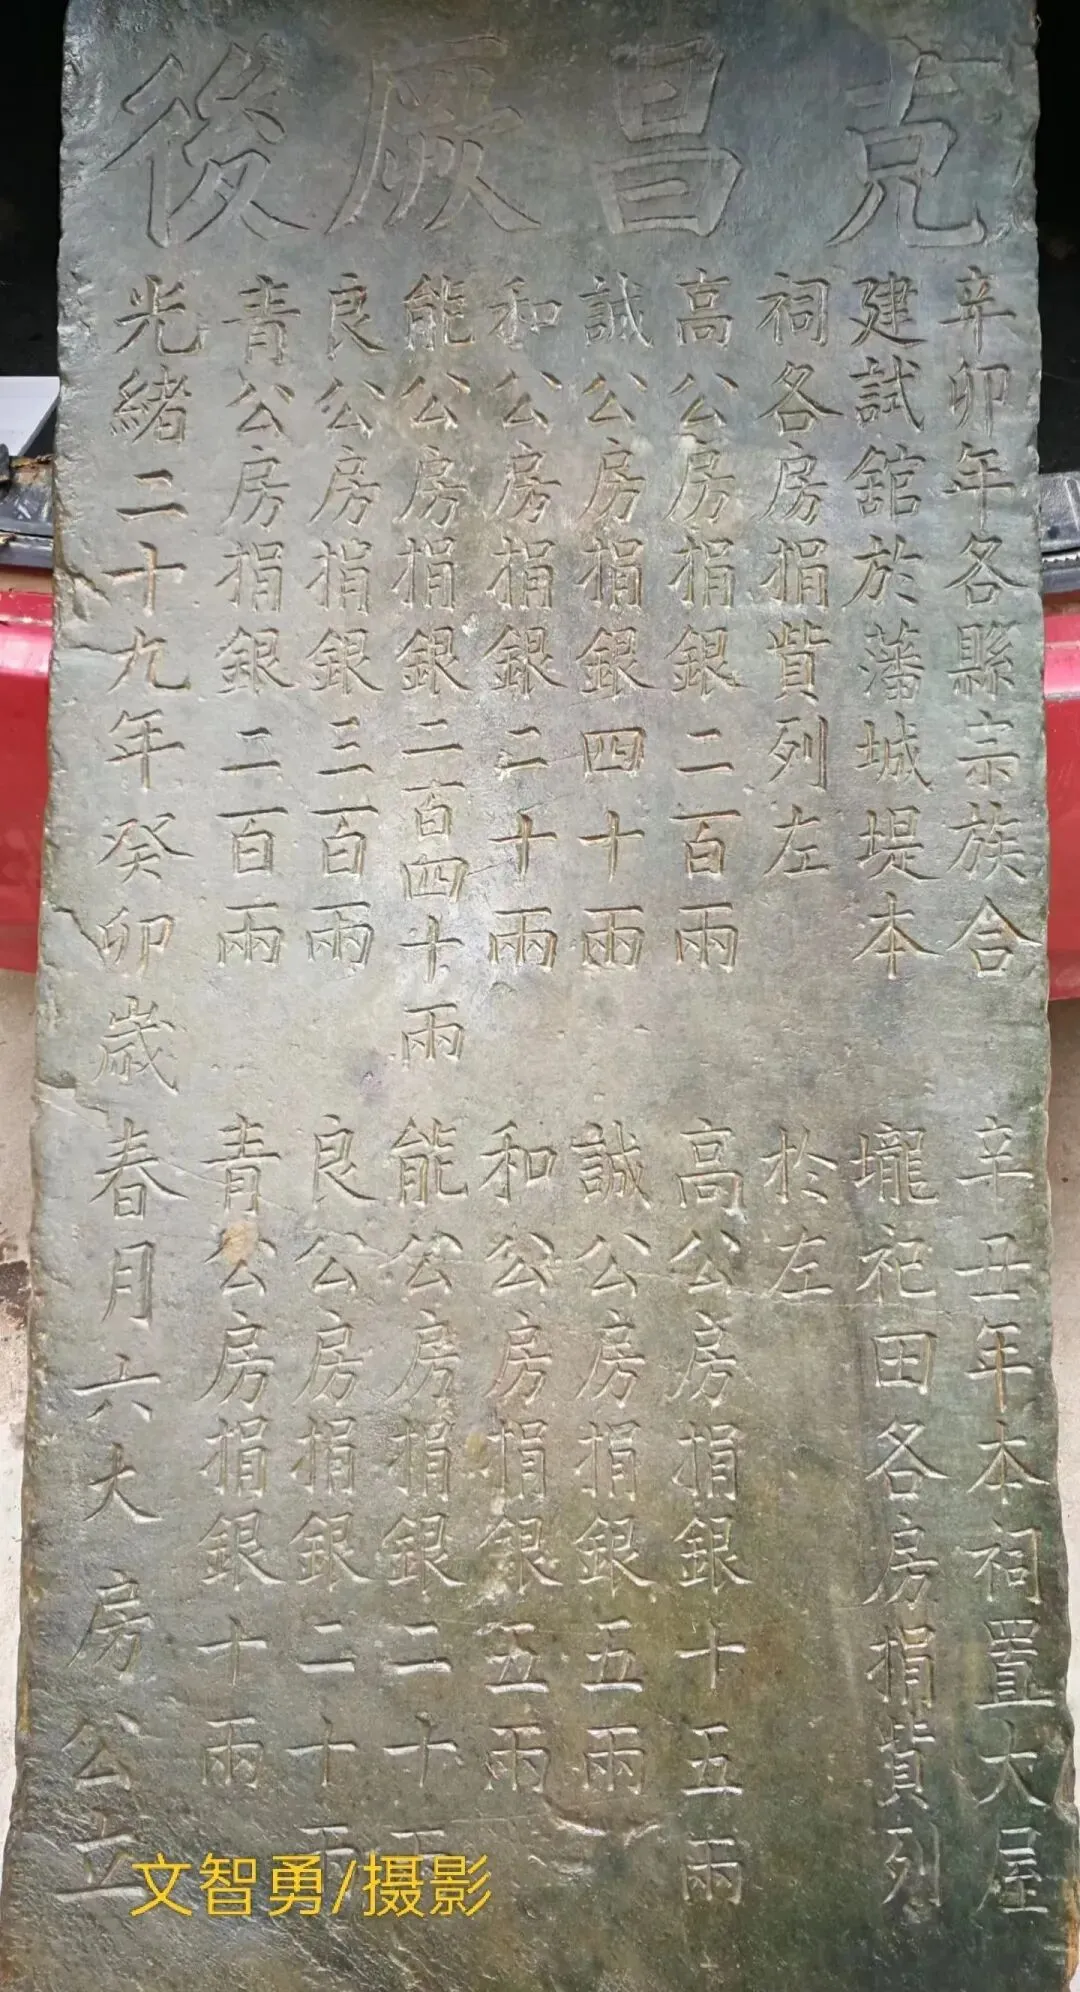 克昌厥後
辛卯年各縣宗族合
建試舘於藩城堤本
祠各房捐貲列左
高公房捐銀二百兩
誠公房捐銀四十兩
和公房捐銀二十兩
能公房捐銀二百四十兩
良公房捐銀三百兩
青公房捐銀二百兩
辛丑年本祠置大屋
壠祀田各房捐貲列
於左
高公房捐銀十五兩
誠公房捐銀五兩
和公房捐銀五兩
能公房捐銀二十兩
良公房捐銀二十兩
青公房捐銀十兩
光緒二十九年癸卯歲春月六大房公立
文智勇/摄影